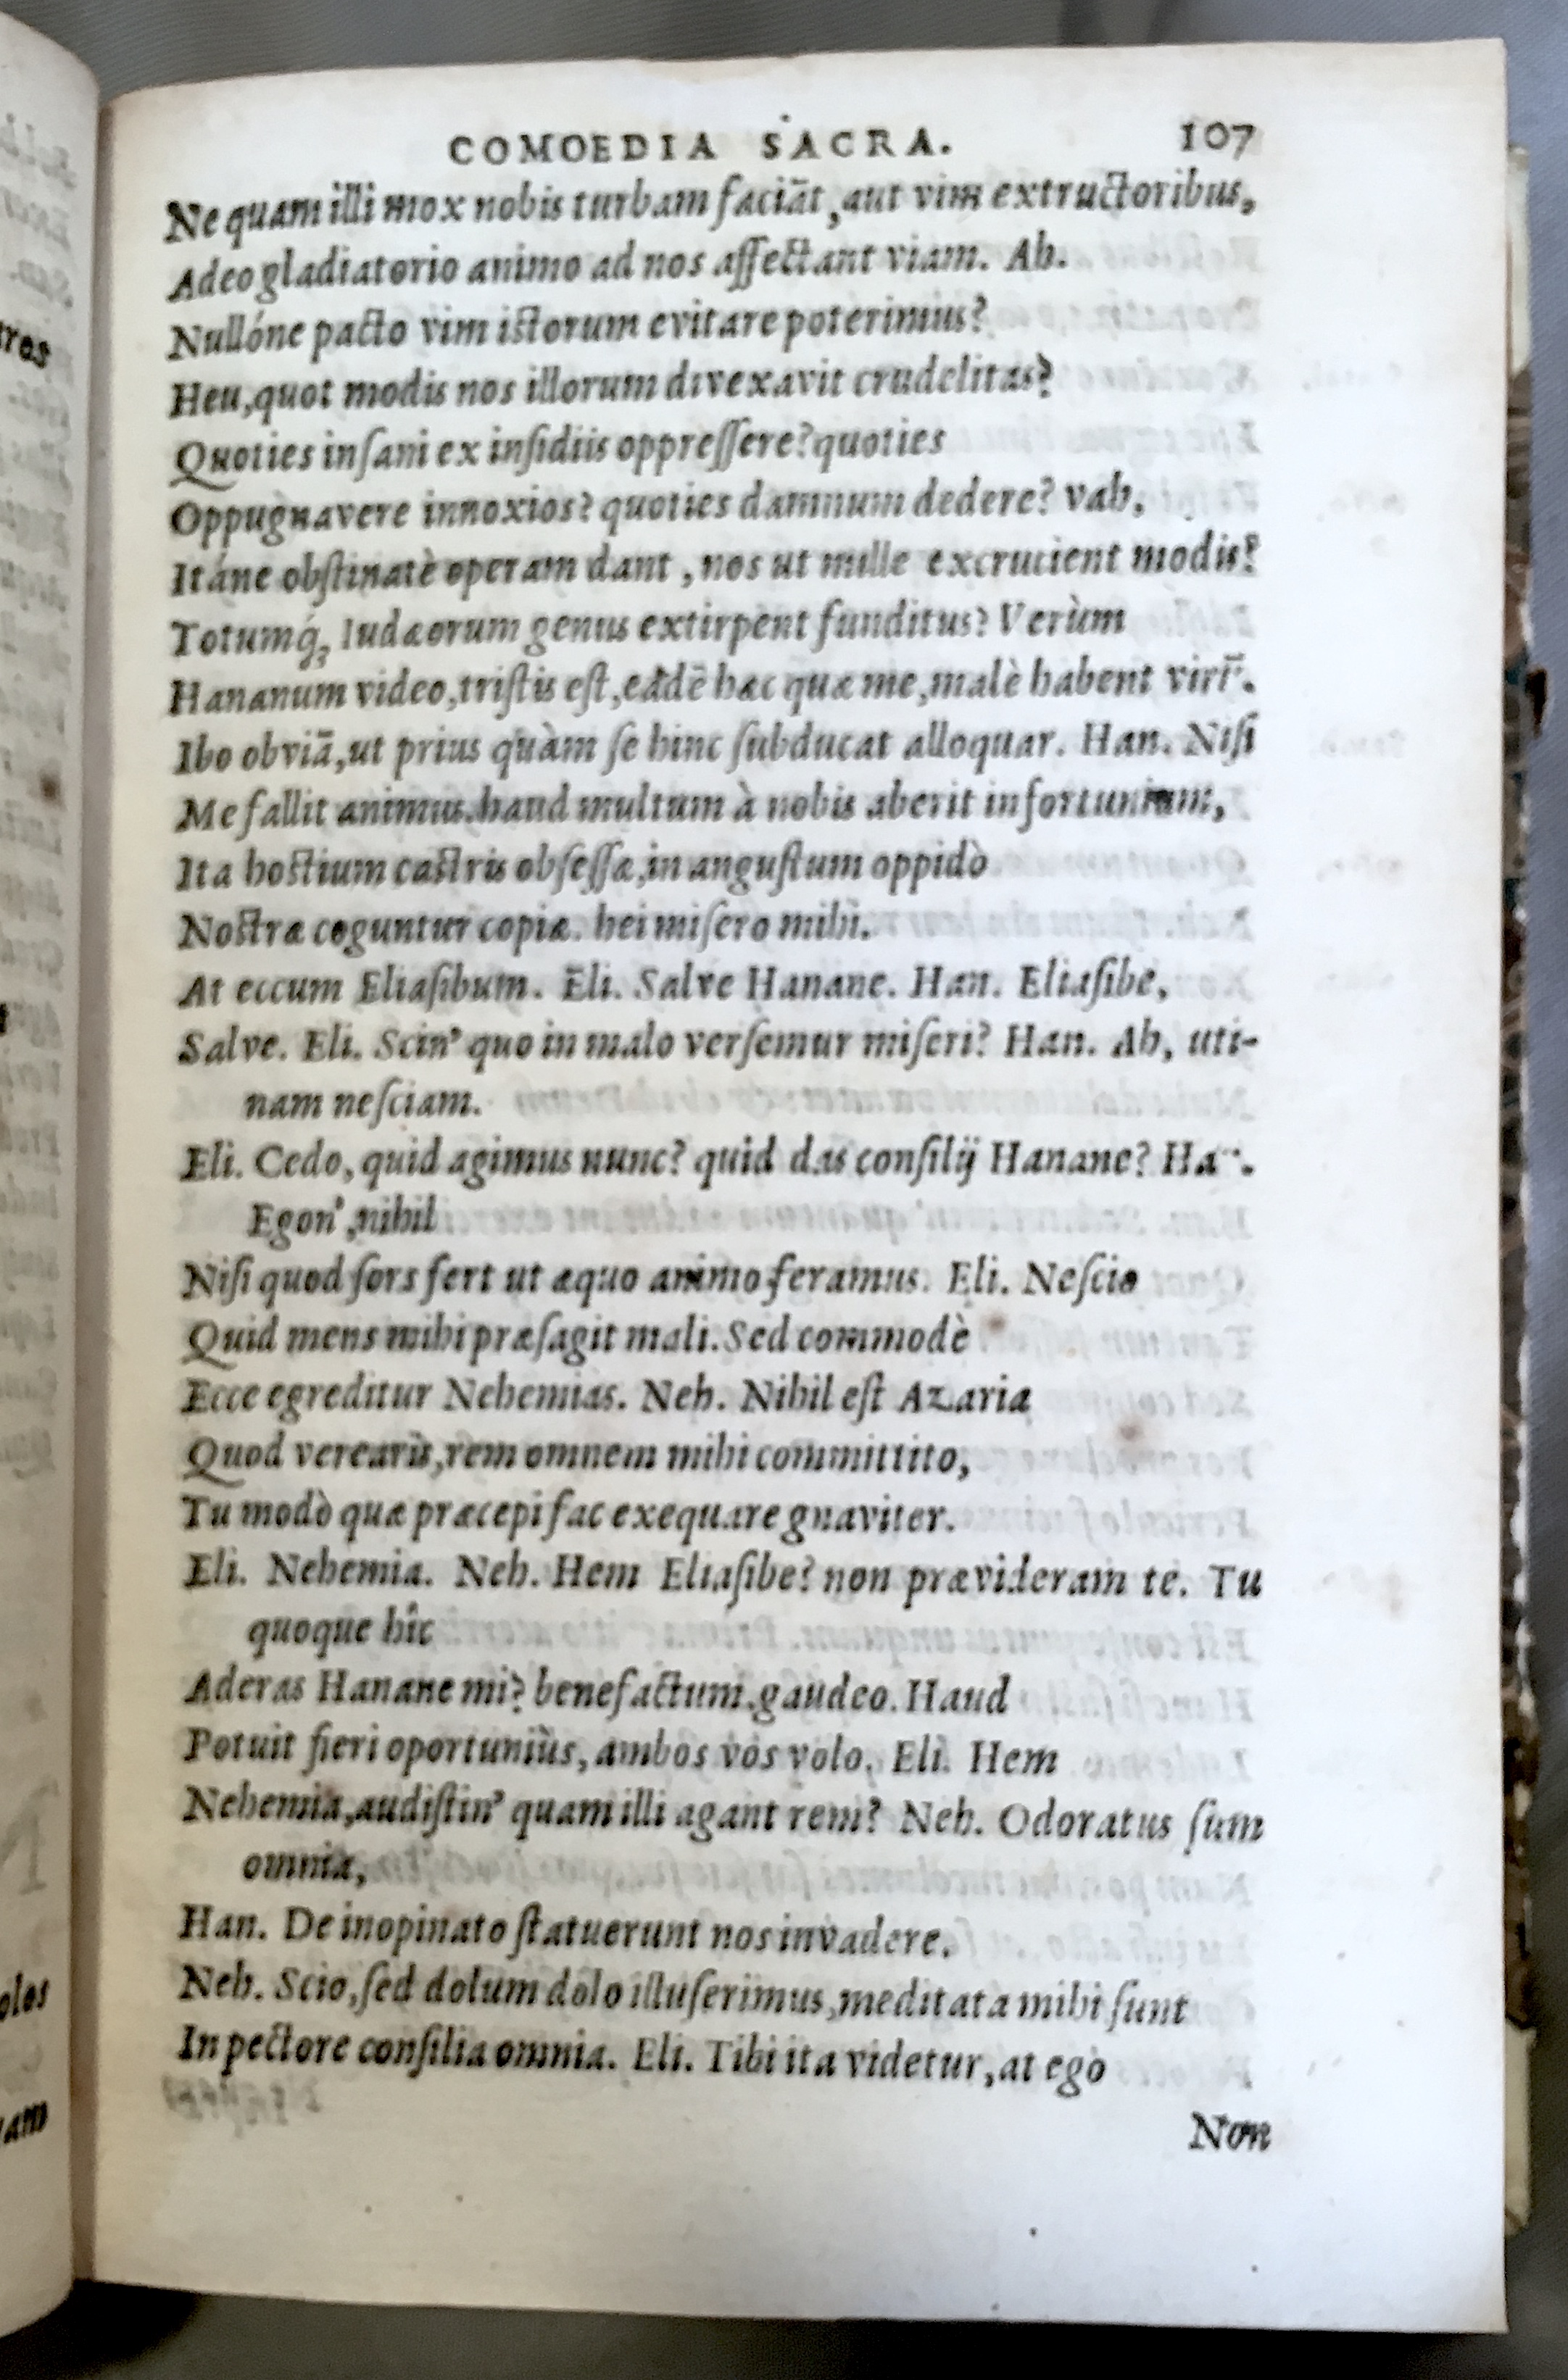 COMOEDIA SACRA. 107
Ne quam illi mox nobis turbam faciāt, aut vim extructoribus,
Adeo gladiatorio animo ad nos affectant viam. Ah.
Nullóne pacto vim istorum evitare poterimus?
Heu, quot modis nos illorum divexavit crudelitas?
Quoties insani ex insidiis oppressere? quoties
Oppugnavere innoxios? quoties damnum dedere? vah,
Itáne obstinatè operam dant, nos ut mille excrucient modis?
Totumq́; Iudæorum genus extirpent funditus? Verùm
Hananum video, tristis est, eādē hæc quæ me, malè habent virū.
Ibo obviā, ut prius quàm se hinc subducat alloquar. Han. Nisi
Me fallit animus. haud multum à nobis aberit infortunium,
Ita hostium castris obsessæ, in angustum oppidò
Nostræ coguntur copiæ. hei misero mihi.
At eccum Eliasibum. Eli. Salve Hanane. Han. Eliasibe,
Salve. Eli. Scin' quo in malo versemur miseri? Han. Ah, uti-
nam nesciam.
Eli. Cedo, quid agimus nunc? quid das consilij Hanane? Han.
Egon', nihil
Nisi quod sors fert ut æquo animo feramus. Eli. Nescio
Quid mens mihi præsagit mali. Sed commodè
Ecce egreditur Nehemias. Neh. Nihil est Azaria
Quod verearis, rem omnem mihi committito,
Tu modò quæ præcepi fac exequare gnaviter.
Eli. Nehemia. Neh. Hem Eliasibe? non prævideram te. Tu
quoque hîc
Aderas Hanane mi? benefactum. gaudeo. Haud
Potuit fieri oportuniùs, ambos vos volo. Eli. Hem
Nehemia, audistin' quam illi agant rem? Neh. Odoratus sum
omnia,
Han. De inopinato statuerunt nos invadere.
Neh. Scio, sed dolum dolo illuserimus, meditata mihi sunt
In pectore consilia omnia. Eli. Tibi ita videtur, at ego
Non